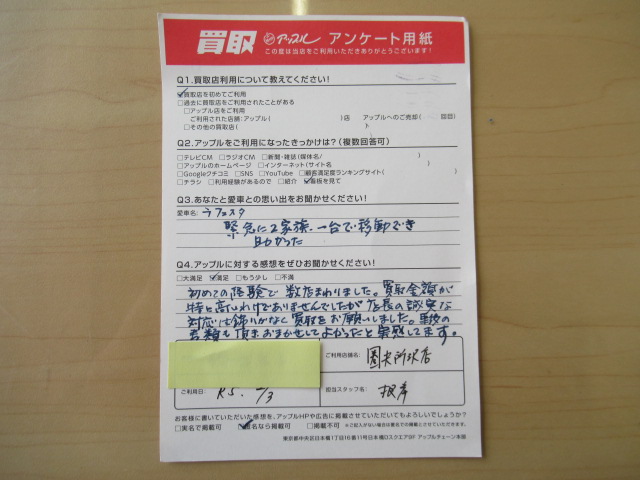 買取 アップル アンケート用紙
この度は当店をご利用いただきありがとうございます!
Q1.買取店利用について教えてください!
☑買取店を初めてご利用
□過去に買取店をご利用されたことがある
□アップル店をご利用
ご利用された店舗:アップル( )店 アップルへのご売却( 回目)
□その他の買取店( )
Q2.アップルをご利用になったきっかけは?(複数回答可)
□テレビCM □ラジオCM □新聞・雑誌(媒体名/ )
□アップルのホームページ □インターネット(サイト名 )
□Googleクチコミ □SNS □YouTube □顧客満足度ランキングサイト( )
□チラシ □利用経験があるので □紹介 ☑看板を見て
Q3.あなたと愛車との思い出をお聞かせください!
愛車名: ラフェスタ
緊急に2家族、一台で移動でき
助かった
Q4.アップルに対する感想をぜひお聞かせください!
□大満足 ☑満足 □もう少し □不満
初めての経験で数店まわりました。買取金額が
特と高いわけでありませんでしたが店長の誠実な
対応は飾りがなく買取をお願いしました。
書類も頂きおまかせしてよかったと実感してます。
ご利用店舗名: 圏央所沢店
ご利用日: R5. /3
担当スタッフ名: 根岸
お客様に書いていただいた感想を、アップルHPや広告に掲載させていただいてもよろしいでしょうか?
□実名で掲載可 ☑匿名なら掲載可 □掲載不可 ※ご記入がない場合は匿名での掲載とさせていただきます。
東京都中央区日本橋1丁目16番11号日本橋Dスクエア8F アップルチェーン本部